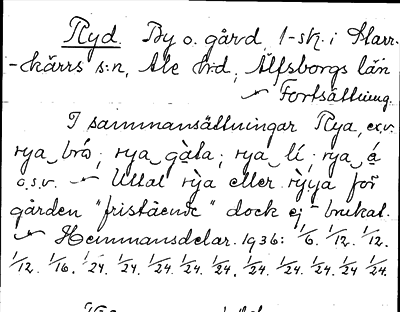 Ryd. By o. gård 1-sk. i Starr-
-kärrs s:n, Ale h:d, Älfsborgs län
Fortsättning.
I sammansättningar Rya, ex.v.
rya bró; rya gàta; rya lí; rya á
o.s.v. Uttal rỳa eller rỳya för
gården "fristående" dock ej brukat.
Hemmansdelar. 1936: 1/6. 1/12. 1/12.
1/12. 1/16. 1/24. 1/24. 1/24. 1/24. 1/24. 1/24. 1/24. 1/24. 1/24